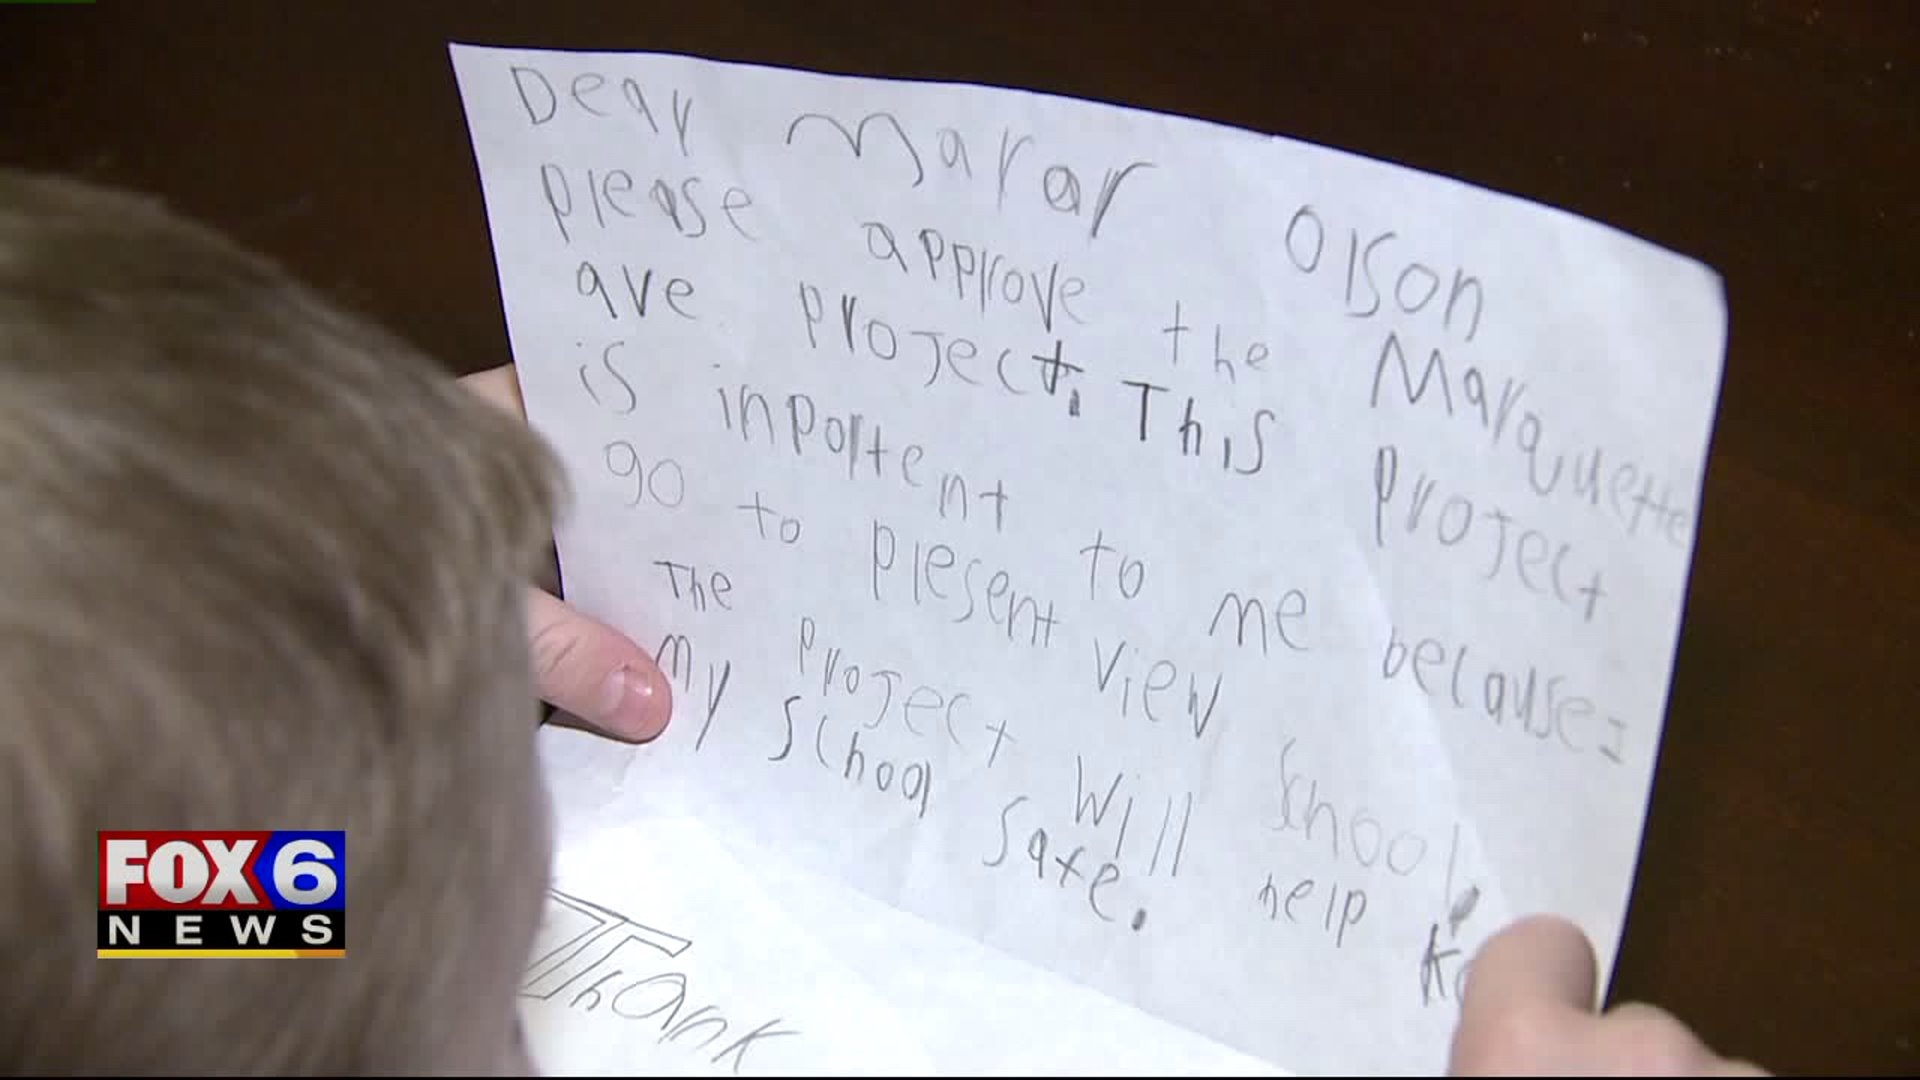 Dear Marar Olson
please approve the Marquette
ave project. This project
is inportent to me because I
go to plesent view school.
The project will help
my school safe.
Thank
FOX 6
NEWS